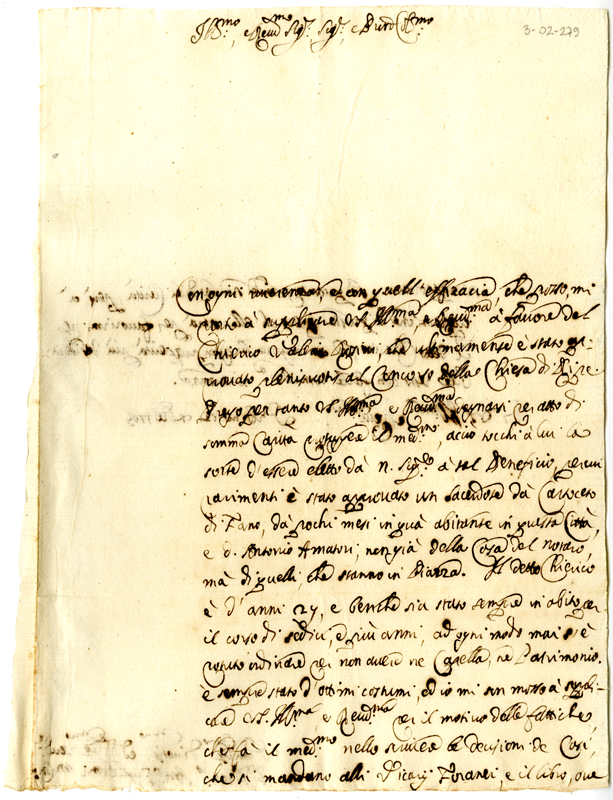 Ill.mo, e Rev.mo Sig.r, Sig.r, e Pron Col.mo
3-02-279
on ogni riverenza, e con quell'efficacia, che posso, mi
porto à supplicare V.S. Ill.ma e Rev.ma à favore del
Chierico Valerio che ultimamente è stato ap¬
provato plenis votis al Concorso della Chiesa di
per tanto V.S. Ill.ma e Rev.ma degnarsi per atto di
somma Carità il med.mo, acciò tocchi à lui la
sorte d'essere eletto dà n. Sig.re à tal Beneficio, per cui
parimenti è stato approvato un Sacerdote dà Cartoceto
di Fano, dà pochi mesi in quà abitante in questa Città,
e D. Antonio Amatori; non già della Casa del notaro,
mà di quelli, che stanno in Piazza. Il detto Chierico
è d'anni 27, e benche sia stato sempre in abito per
il corso di sedici, e più anni, ad ogni modo mai si è
potuto ordinare per non avere ne Capella, ne Patrimonio.
è sempre stato d'ottimi costumi, ed io mi son mosso à suppli¬
care V.S. Ill.ma e Rev.ma per il motivo delle fattiche,
che fà il med.mo nello scrivere le decisioni de Casi,
che si mandano alli Vicarj Foranei, e il libro, ove